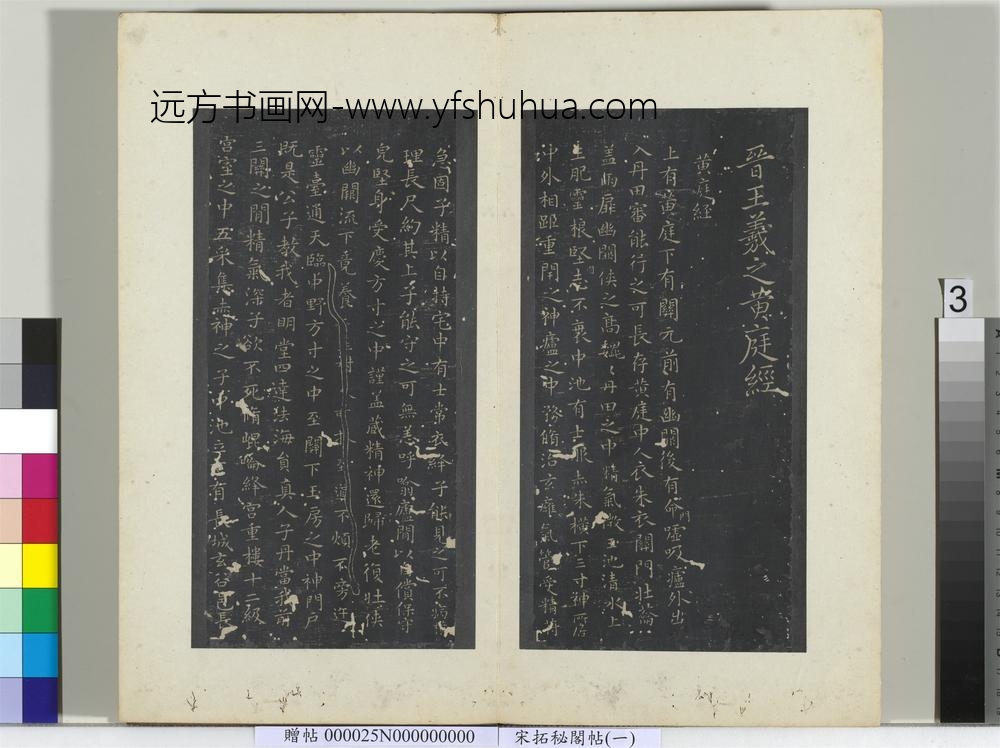 远方书画网-www.yfshuhua.com
晉王羲之黄庭經
黄庭経
上有黄庭下有關元前有幽闕後有命嘘吸廬外出
入丹田審能行之可長存黄庭中人衣朱衣關門壮蘥
盖兩扉幽闕侠之高巍〻丹田之中精氣微玉池清水上
生肥靈根堅志不衰中池有士服赤朱横下三寸神所居
中外相距重閇之神廬之中務脩治玄癰氣管受精符
急固子精以自持宅中有士常衣絳子能見之可不病
理長尺約其上子能守之可無恙呼噏廬間以自償保守
皃堅身受慶方寸之中謹盖藏精神還歸老復壮侠
以幽闕流下竟養至道不煩不旁迕
靈臺通天臨中野方寸之中至關下玉房之中神門户
既是公子教我者明堂四達法海員真人子丹當我前
三關之間精氣深子欲不死脩崐崘絳宫重樓十二級
宫室之中五采集赤神之子中池立下有長城玄谷邑長
3
贈帖 000025N000000000
宋拓秘閣帖(一)